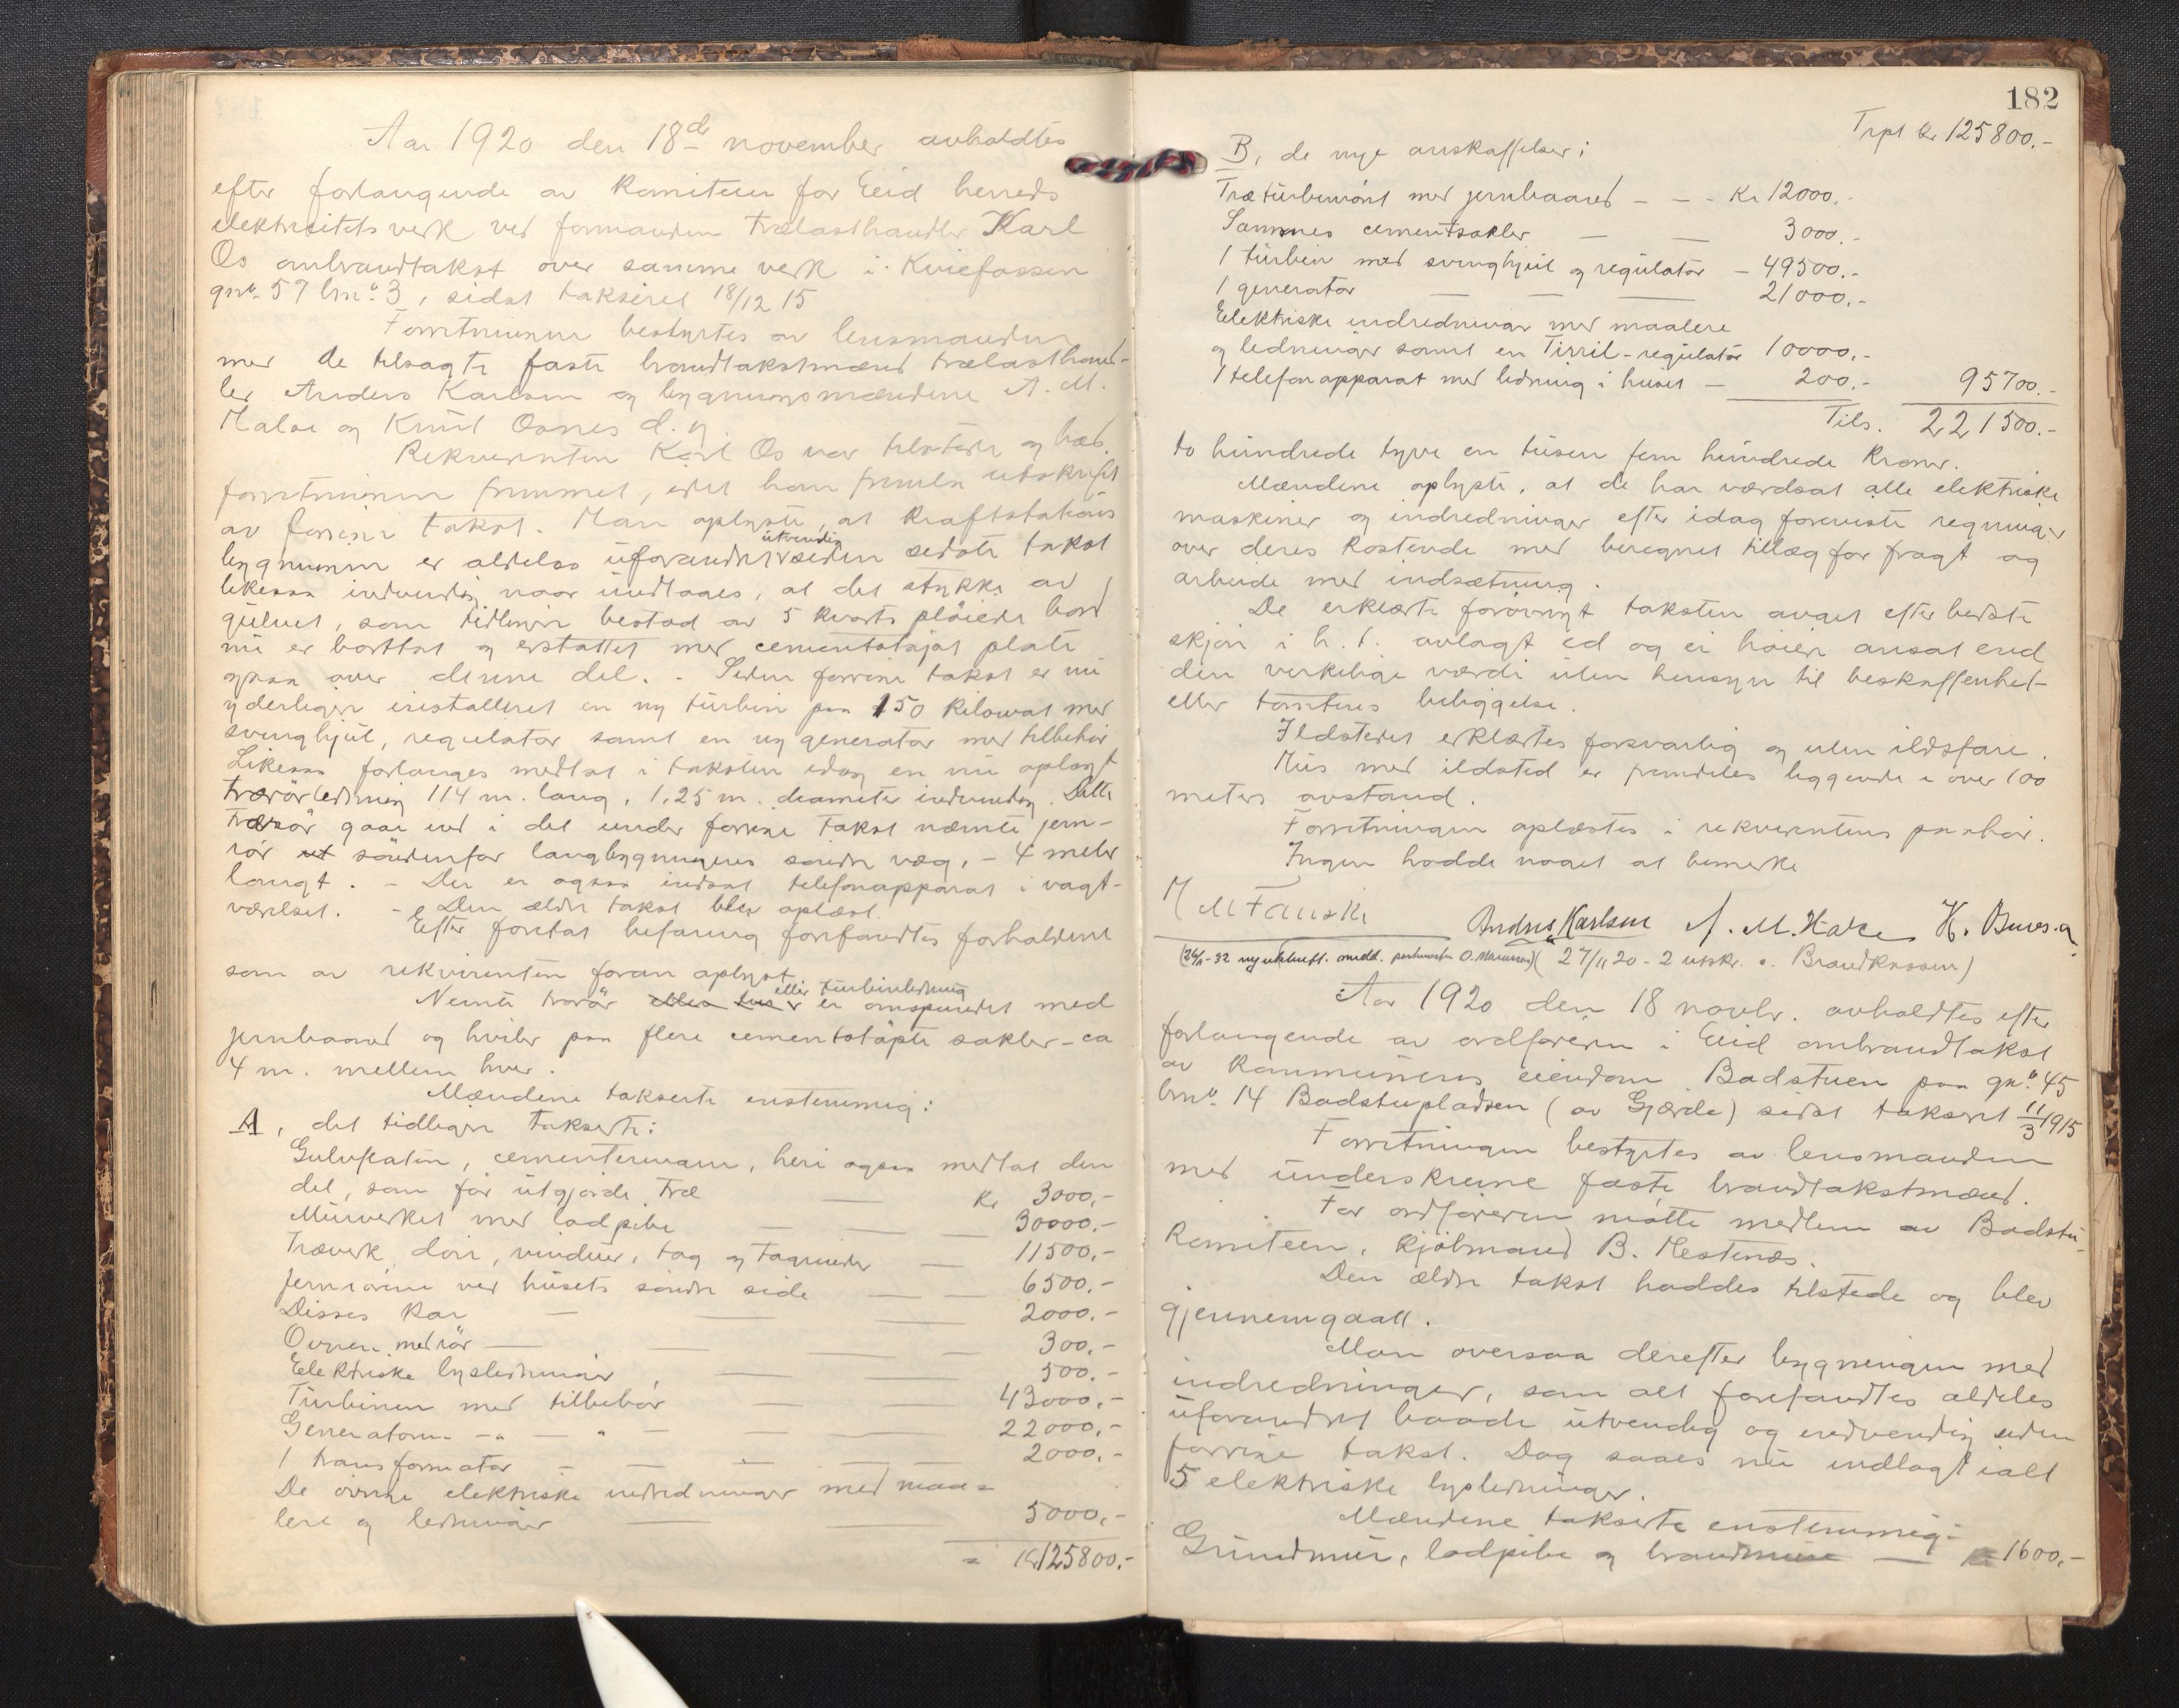 Aar 1920 den 18de november avholdtes
efter forlangende av Komiteen for Eid herreds
elektrisitetsverk ved formanden trælasthandler Karl
Os ombrandtakst over samme verk i Kviefossen
gno. 57 bno. 3, sidst takseret 18/12 15
Forretningen bestyrtes av lensmanden
med de tilsagte faste brandtakstmænd trælasthand-
ler Anders Karlsen og bygningsmændene A. M.
Hatse og Knut Osnes d. y.
Rekvirenten Karl Os var tilstede og bad
forretningen fremmet, idet han fremla utskrift
av forrige takst. Han oplyste, at Kraftstations
bygningen er aldeles uforandret utvendig siden sidste takst
likesaa indvendig naar undtages, at det stykke av
gulvet, som tidligere bestod av 5 kvarts pløiede bord
nu er borttat og erstattet med cementstøjpt plate
ogsaa over denne del. - Siden forrige takst er nu
yderligere installeret en ny turbin paa 150 Kilowat med
svinghjul, regulator samt en ny generator med tilbehør
Likesaa forlanges medtat i taksten idag en nu oplagt
trærørledning 114 m. lang, 1,25 m. diameter indvendig. Dette
trærør gaar ind i det under forrige takst nævnte jern-
rør søndenfor langbygningens søndre væg, - 4 meter
langt. - Der er ogsaa indsat telefonapparat i vagt-
værelset. - Den ældre takst blev oplæst.
Efter foretat befaring forefandtes forholdene
som av rekvirenten foran oplyst.
Nevnte trærør eller turbinledning er omspundet med
jernbaand og hviler paa flere cementstøpte sokler - ca
4 m. mellem hver.
Mændene takserte enstemmig:
A, det tidligere takserte:
Gulvflaten, cementeringen, heri ogsaa medtat den
del, som før utgjorde træ — Kr 3000,-
Murverket med ladpibe — — 30000,-
Træverk, døre, vinduer, tag og tagrender — 11500,-
Jernrørene ved husets søndre side — — 6500,-
Disses Kar — — — 2000,-
Ovnen med rør — — — 300,-
Elektriske lysledninger, — — 500,-
Turbinen med tilbehør — — 43000,-
Generatoren -"- — " — — — 22000,-
1 transformator — — — — 2000,-
De øvrige elektriske indredninger med maa=
lere og ledninger — — 5000,-
= Kr 125800,-
182
Trpt Kr 125800.-
B, de nye anskaffelser:
Træturbinrørt med jernbaand — — - Kr 12000.-
Sammes cementsokler — — 3000.-
1 turbin med svinghjul og regulator — 49500.-
1 generator — — — 21000,-
Elektriske indredninger med maalere
og ledninger samt en Tirril-regulator 10000,-
1 telefonapparat med ledning i huset — 200,- 95700.-
Tils. 221500.-
to hundrede tyve en tusen fem hundrede Kroner.
Mændene oplyste, at de har værdsat alle elektriske
maskiner og indredninger efter idag foreviste regninger
over deres Kostende med beregnet tillæg for fragt og
arbeide med indsætning.
De erklærte forøvrigt taksten avgit efter bedste
skjøn i h. t. avlagt ed og ei høiere ansat end
den virkelige værdi uten hensyn til beskaffenhet
eller tomtens beliggelse.
Ildstedet erklærtes forsvarlig og uten ildsfare.
Hus med ildsted er fremdeles liggende i over 100
meters avstand.
Forretningen oplæstes i rekvirentens paahør.
Ingen hadde noget at bemerke
Anders Karlsen A. M. Hatse K. Osnes d. y.
27/11 20 - 2 utskr. Brandkassen)
Aar 1920 den 18 novbr. avholdtes efter
forlangende av ordføreren i Eid ombrandtakst
av Kommunens eiendom Badstuen paa gno. 45
bno. 14 Badstupladsen (av Gjærde) sidst takseret 11/3 1915
Forretningen bestyrtes av lensmanden
med underskrevne faste brandtakstmænd.
For ordføreren møtte medlem av Badstu-
Komiteen, Kjøbmand B. Hestenæs.
Den ældre takst haddes tilstede og blev
gjennemgaatt.
Man oversaa derefter bygningen med
indredninger, som alt forefandtes aldeles
uforandret baade utvendig og indvendig siden
forrige takst. Dog saaes nu indlagt ialt
5 elektriske lysledninger.
Mændene takserte enstemmig:
Grundmur, ladpibe og brandmur — Kr 1600,-